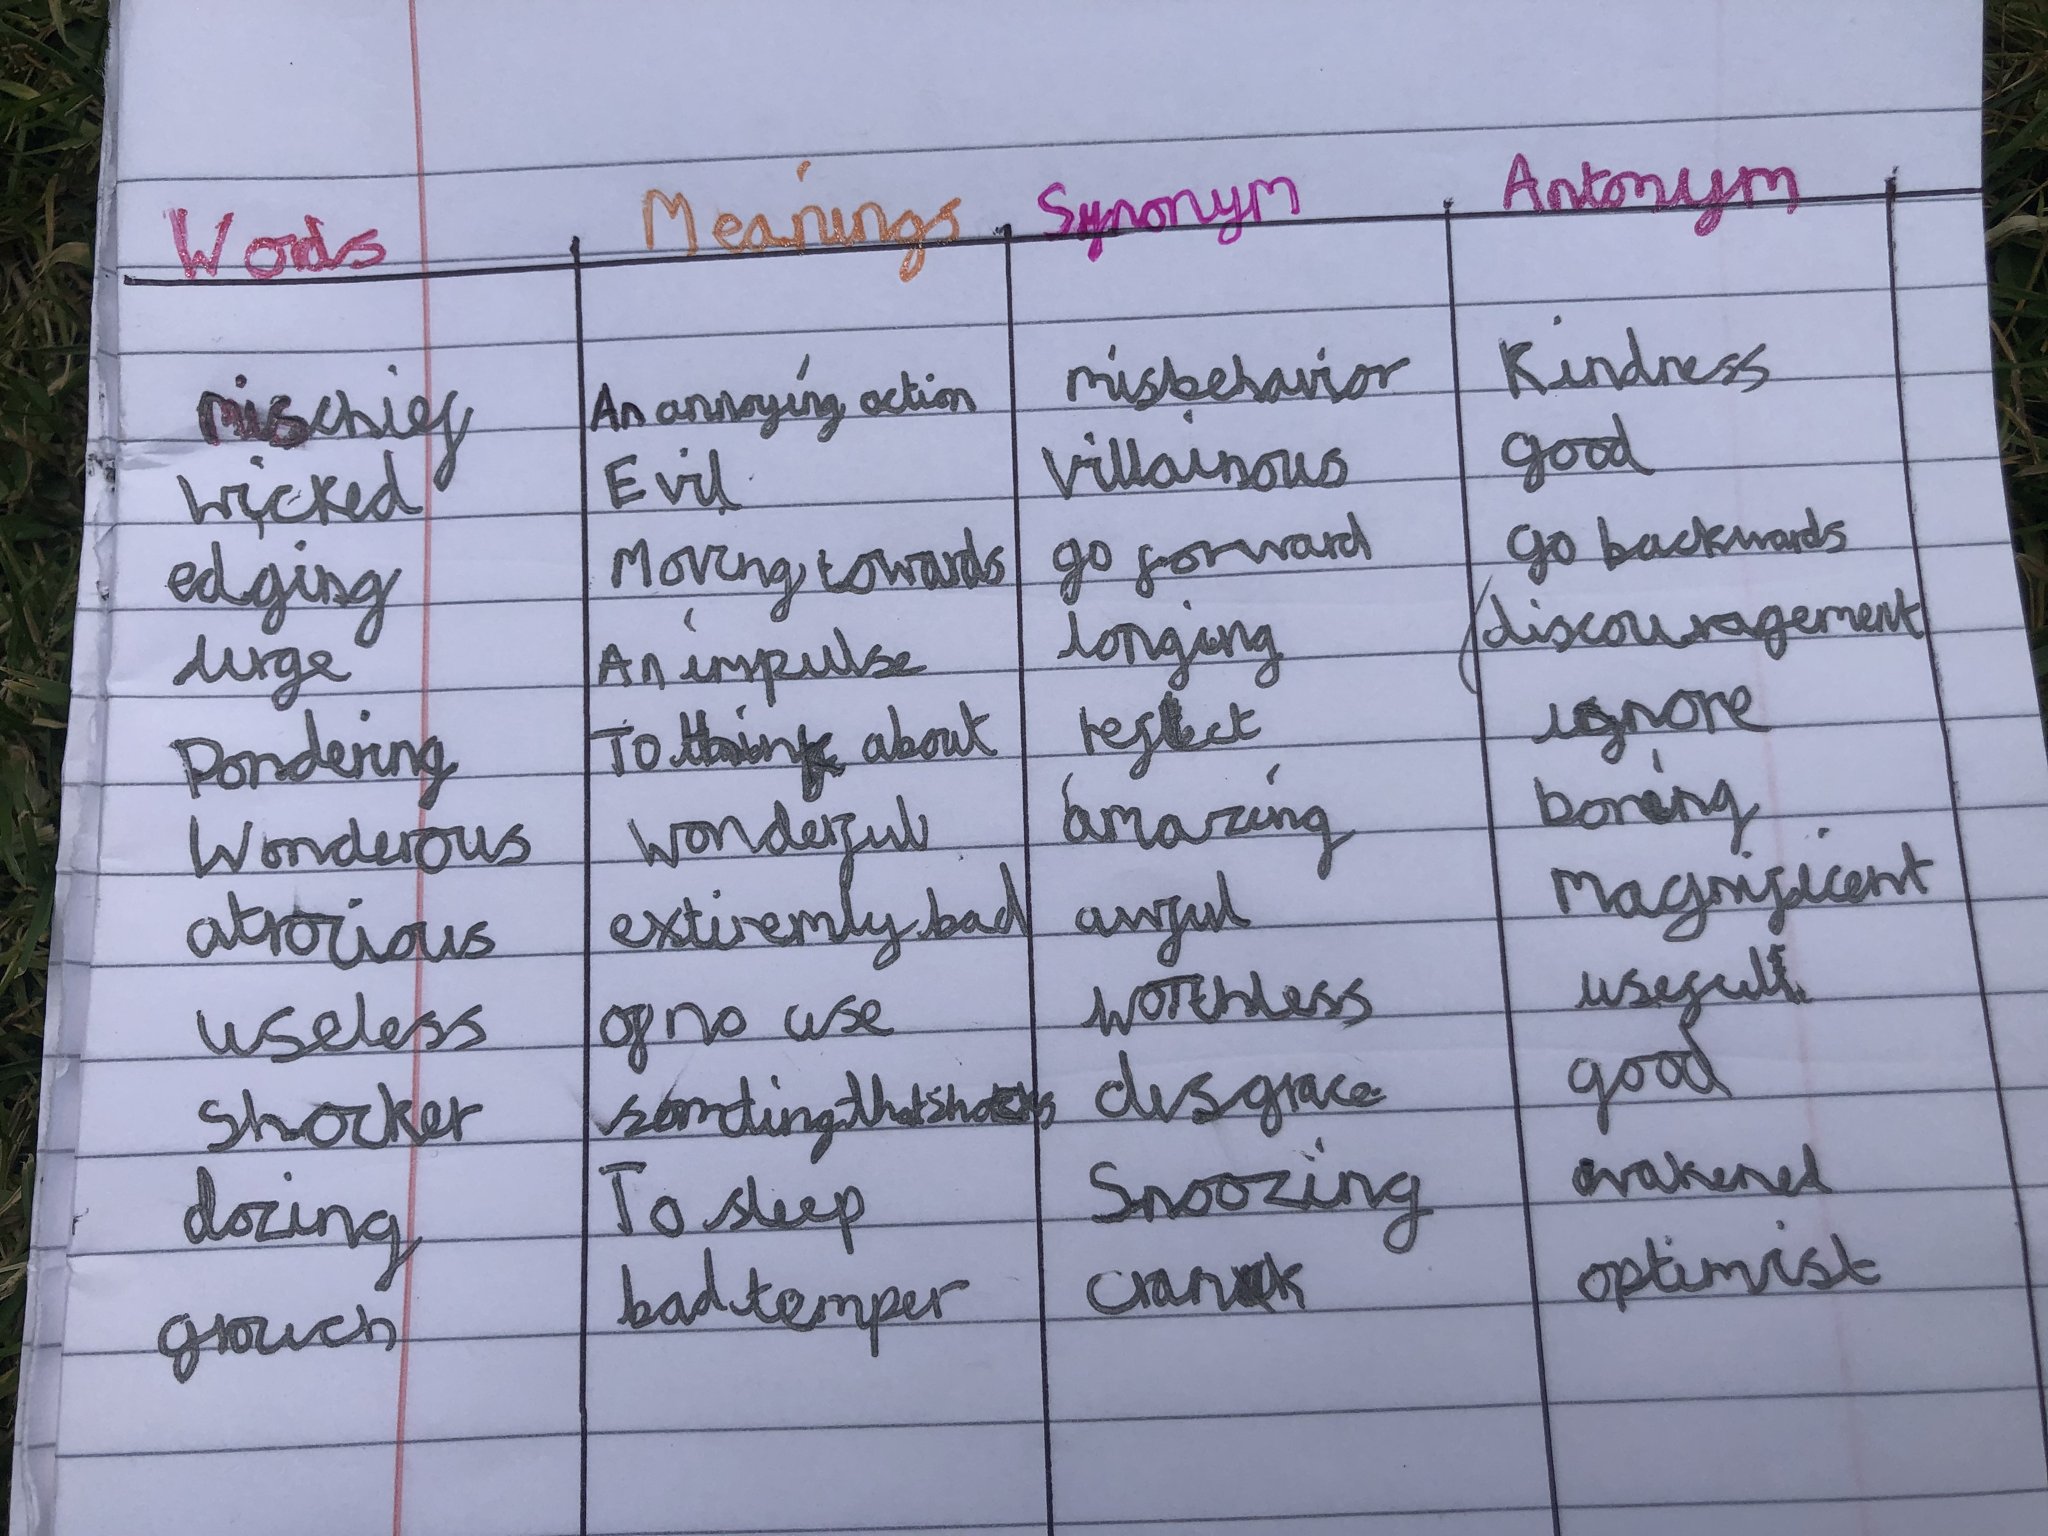 Words Meanings Synonym Antonym
mischief An annoying action misbehavior Kindness
wicked Evil villainous good
edging Moving towards go forward go backwards
urge An impulse longing discouragement
Pondering To think about reflect ignore
Wonderous wonderful amazing boring
atrocious extiremly bad awful Magnificent
useless of no use worthless useful
Shocker somthing that shocks disgrace good
dozing To sleep Snoozing wakened
grouch bad temper crank optimist